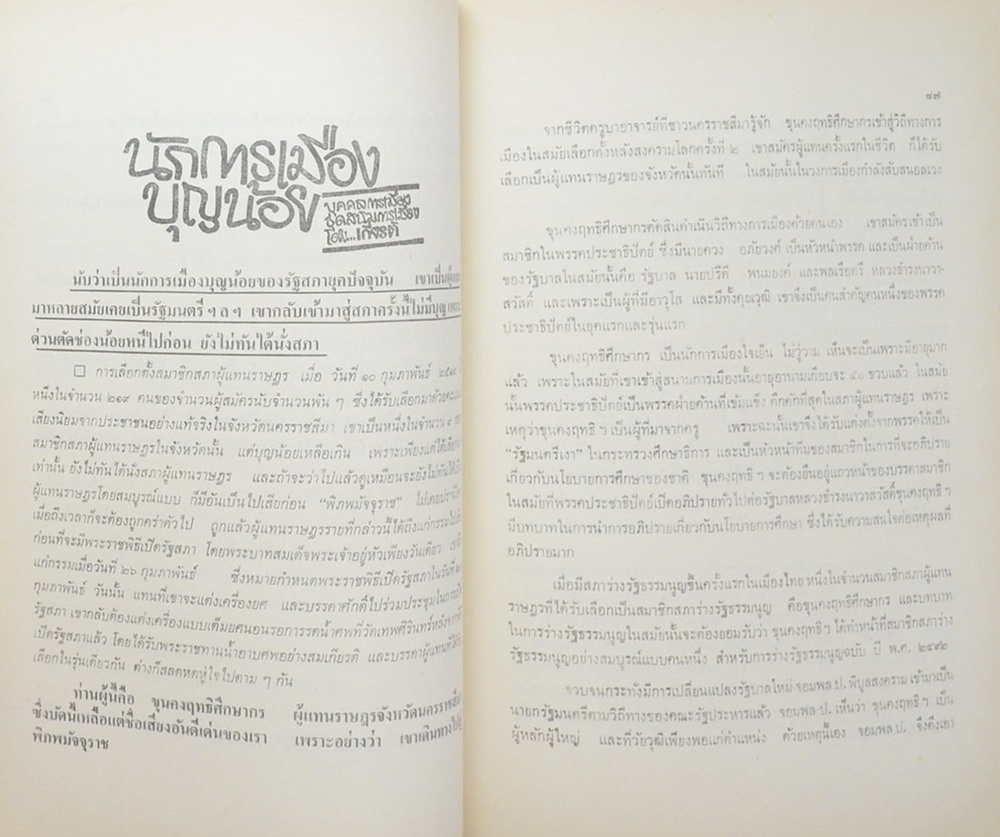 นักการเมือง
บุญน้อย
บุคคลการเมือง
ชุดสนามการเมือง
โดย...เกียรติ
นับว่าเป็นนักการเมืองบุญน้อยของรัฐสภายุคปัจจุบัน เขาเป็น
มาหลายสมัยเคยเป็นรัฐมนตรี ฯ ล ฯ เขากลับเข้ามาสู่สภาครั้งนี้ไม่มีบุญ
ด่วนตัดช่องน้อยหนีไปก่อน ยังไม่ทันได้นั่งสภา
☐ การเลือกตั้งสมาชิกสภาผู้แทนราษฎร เมื่อ วันที่ ๑๐ กุมภาพันธ์
หนึ่งในจำนวน ๒๑๙ คนของจำนวนผู้สมัครนับจำนวนพัน ๆ ซึ่งได้รับเลือกมาด้วย
เสียงนิยมจากประชาชนอย่างแท้จริงในจังหวัดนครราชสีมา เขาเป็นหนึ่งในจำนวน
สมาชิกสภาผู้แทนราษฎรในจังหวัดนั้น แต่บุญน้อยเหลือเกิน เพราะเพียงแต่ได้
เท่านั้น ยังไม่ทันได้นั่งสภาผู้แทนราษฎร และถ้าจะว่าไปแล้วดูเหมือนจะยังไม่ทันได้
ผู้แทนราษฎรโดยสมบูรณ์แบบ ก็มีอันเป็นไปเสียก่อน “พิภพมัจจุราช” ไม่เคย
เมื่อถึงเวลาก็จะต้องถูกคร่าตัวไป ถูกแล้วผู้แทนราษฎรรายที่กล่าวนี้ได้ถึงแก่กรรม
ก่อนที่จะมีพระราชพิธีเปิดรัฐสภา โดยพระบาทสมเด็จพระเจ้าอยู่หัวเพียงวันเดียว
แก่กรรมเมื่อวันที่ ๒๖ กุมภาพันธ์ ซึ่งหมายกำหนดพระราชพิธีเปิดรัฐสภาในวันที่
กุมภาพันธ์ วันนั้น แทนที่เขาจะแต่งเครื่องยศ และบรรดาศักดิ์ไปร่วมประชุมใน
รัฐสภา เขากลับต้องแต่งเครื่องแบบเต็มยศนอนรอการรดน้ำศพที่วัดเทพศิรินทร์หลังจาก
เปิดรัฐสภาแล้ว โดยได้รับพระราชทานน้ำอาบศพอย่างสมเกียรติ และบรรดาผู้แทนที่ได้
เลือกในรุ่นเดียวกัน ต่างก็สลดหดหู่ใจไปตาม ๆ กัน
ท่านผู้นี้คือ ขุนคงฤทธิศึกษากร ผู้แทนราษฎรจังหวัดนครราชสีมา
ซึ่งบัดนี้เหลือแต่ชื่อเสียงอันดีเด่นของเรา เพราะอย่างว่า เขาเดินทางไป
พิภพมัจจุราช
๘๗
จากชีวิตครูบาอาจารย์ที่ชาวนครราชสีมารู้จัก ขุนคงฤทธิศึกษากรเข้าสู่วิถีทางการ
เมืองในสมัยเลือกตั้งหลังสงครามโลกครั้งที่ ๒ เขาสมัครผู้แทนครั้งแรกในชีวิต ก็ได้รับ
เลือกเป็นผู้แทนราษฎรของจังหวัดนั้นทันที ในสมัยนั้นในวงการเมืองกำลังสับสนอลเวง
ขุนคงฤทธิศึกษากรตัดสินดำเนินวิถีทางการเมืองด้วยตนเอง เขาสมัครเข้าเป็น
สมาชิกในพรรคประชาธิปัตย์ ซึ่งมีนายควง อภัยวงศ์ เป็นหัวหน้าพรรค และเป็นฝ่ายค้าน
ของรัฐบาลในสมัยนั้นคือ รัฐบาล นายปรีดี พนมยงค์ และพลเรือตรี หลวงธำรงนาวา-
สวัสดิ์ และเพราะเป็นผู้ที่มีอาวุโส และมีทั้งคุณวุฒิ เขาจึงเป็นคนสำคัญคนหนึ่งของพรรค
ประชาธิปัตย์ในยุคแรกและรุ่นแรก
ขุนคงฤทธิศึกษากร เป็นนักการเมืองใจเย็น ไม่วู่วาม เห็นจะเป็นเพราะมีอายุมาก
แล้ว เพราะในสมัยที่เขาเข้าสู่สนามการเมืองนั้นอายุอานามเกือบจะ ๕๐ ขวบแล้ว ในสมัย
นั้นพรรคประชาธิปัตย์เป็นพรรคฝ่ายค้านที่เข้มแข็ง คึกคักที่สุดในสภาผู้แทนราษฎร เพราะ
เหตุว่าขุนคงฤทธิ ฯ เป็นผู้ที่มาจากครู เพราะฉะนั้นเขาจึงได้รับแต่งตั้งจากพรรคให้เป็น
“รัฐมนตรีเงา” ในกระทรวงศึกษาธิการ และเป็นหัวหน้าทีมของสมาชิกในการที่จะอภิปราย
เกี่ยวกับนโยบายการศึกษาของชาติ ขุนคงฤทธิ ฯ จะต้องยืนอยู่แถวหน้าของบรรดาสมาชิก
ในสมัยที่พรรคประชาธิปัตย์เปิดอภิปรายทั่วไปต่อรัฐบาลหลวงธำรงนาวาสวัสดิ์ขุนคงฤทธิ ฯ
มีบทบาทในการนำการอภิปรายเกี่ยวกับนโยบายการศึกษา ซึ่งได้รับความสนใจต่อเหตุผลที่
อภิปรายมาก
เมื่อมีสภาร่างรัฐธรรมนูญขึ้นครั้งแรกในเมืองไทย หนึ่งในจำนวนสมาชิกสภาผู้แทน
ราษฎรที่ได้รับเลือกเป็นสมาชิกสภาร่างรัฐธรรมนูญ คือขุนคงฤทธิศึกษากร และบทบาท
ในการร่างรัฐธรรมนูญในสมัยนั้นจะต้องยอมรับว่า ขุนคงฤทธิ ฯ ได้ทำหน้าที่สมาชิกสภาร่าง
รัฐธรรมนูญอย่างสมบูรณ์แบบคนหนึ่ง สำหรับการร่างรัฐธรรมนูญฉบับ ปี พ.ศ. ๒๔๙๒
จวบจนกระทั่งมีการเปลี่ยนแปลงรัฐบาลใหม่ จอมพล ป. พิบูลสงคราม เข้ามาเป็น
นายกรัฐมนตรีตามวิถีทางของคณะรัฐประหารแล้ว จอมพล ป. เห็นว่า ขุนคงฤทธิ ฯ เป็น
ผู้หลักผู้ใหญ่ และที่วัยวุฒิเพียงพอแก่ตำแหน่ง ด้วยเหตุนี้เอง จอมพล ป. จึงดึงเอา